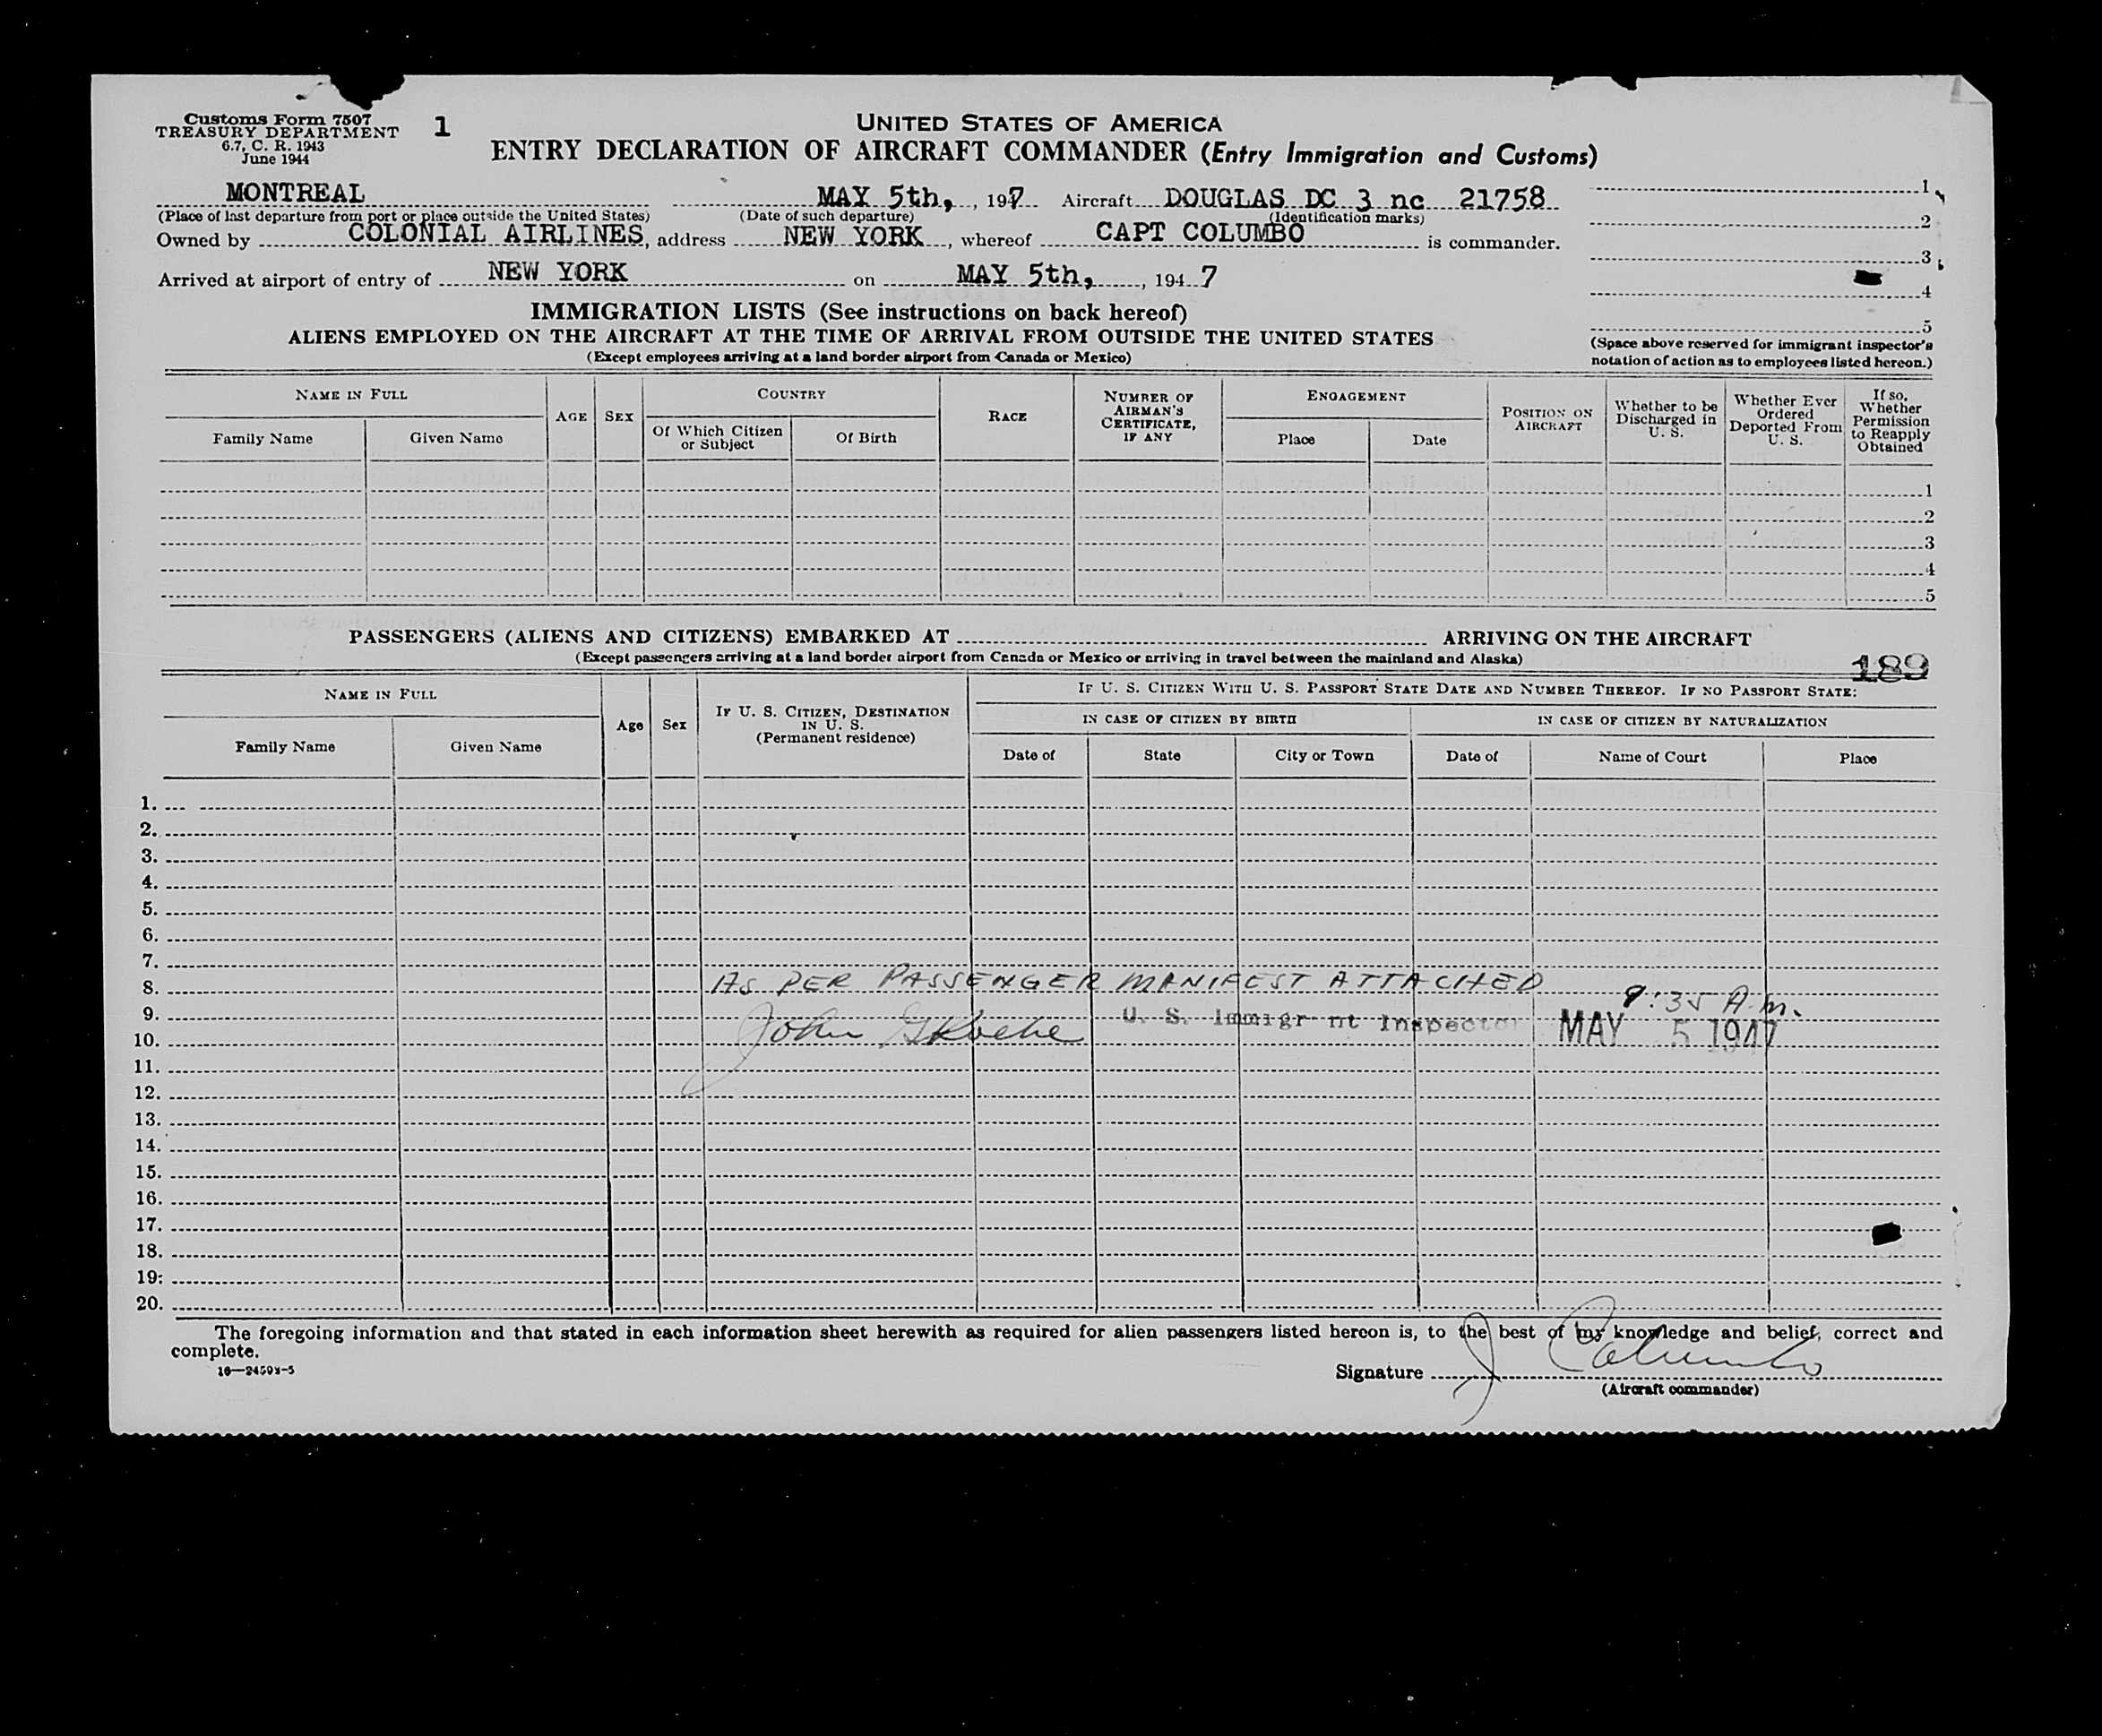 Customs Form 7507
TREASURY DEPARTMENT
6.7, C. R. 1943
June 1944
1
UNITED STATES OF AMERICA
ENTRY DECLARATION OF AIRCRAFT COMMANDER (Entry Immigration and Customs)
MONTREAL MAY 5th, , 1947 Aircraft DOUGLAS DC 3 nc 21758
(Place of last departure from port or place outside the United States) (Date of such departure) (Identification marks)
Owned by COLONIAL AIRLINES, address NEW YORK, whereof CAPT COLUMBO is commander.
Arrived at airport of entry of NEW YORK on MAY 5th, , 194 7
1
2
3
4
5
(Space above reserved for immigrant inspector's
notation of action as to employees listed hereon.)
IMMIGRATION LISTS (See instructions on back hereof)
ALIENS EMPLOYED ON THE AIRCRAFT AT THE TIME OF ARRIVAL FROM OUTSIDE THE UNITED STATES
(Except employees arriving at a land border airport from Canada or Mexico)
NAME IN FULL
Family Name
Given Name
AGE
SEX
COUNTRY
Of Which Citizen
or Subject
Of Birth
RACE
NUMBER OF
AIRMAN'S
CERTIFICATE,
IF ANY
ENGAGEMENT
Place
Date
POSITION ON
AIRCRAFT
Whether to be
Discharged in
U. S.
Whether Ever
Ordered
Deported From
U. S.
If so,
Whether
Permission
to Reapply
Obtained
1
2
3
4
5
PASSENGERS (ALIENS AND CITIZENS) EMBARKED AT ARRIVING ON THE AIRCRAFT
(Except passengers arriving at a land border airport from Canada or Mexico or arriving in travel between the mainland and Alaska)
189
NAME IN FULL
Family Name
Given Name
Age
Sex
IF U. S. CITIZEN, DESTINATION
IN U. S.
(Permanent residence)
IF U. S. CITIZEN WITH U. S. PASSPORT STATE DATE AND NUMBER THEREOF. IF NO PASSPORT STATE:
IN CASE OF CITIZEN BY BIRTH
Date of
State
City or Town
IN CASE OF CITIZEN BY NATURALIZATION
Date of
Name of Court
Place
1.
2.
3.
4.
5.
6.
7.
8. AS PER PASSENGER MANIFEST ATTACHED
9:35 A.M.
9. John U. S. Immigr nt Inspector MAY 5 1947
10.
11.
12.
13.
14.
15.
16.
17.
18.
19.
20.
The foregoing information and that stated in each information sheet herewith as required for alien passengers listed hereon is, to the best of my knowledge and belief, correct and
complete.
Signature J Columbo
(Aircraft commander)